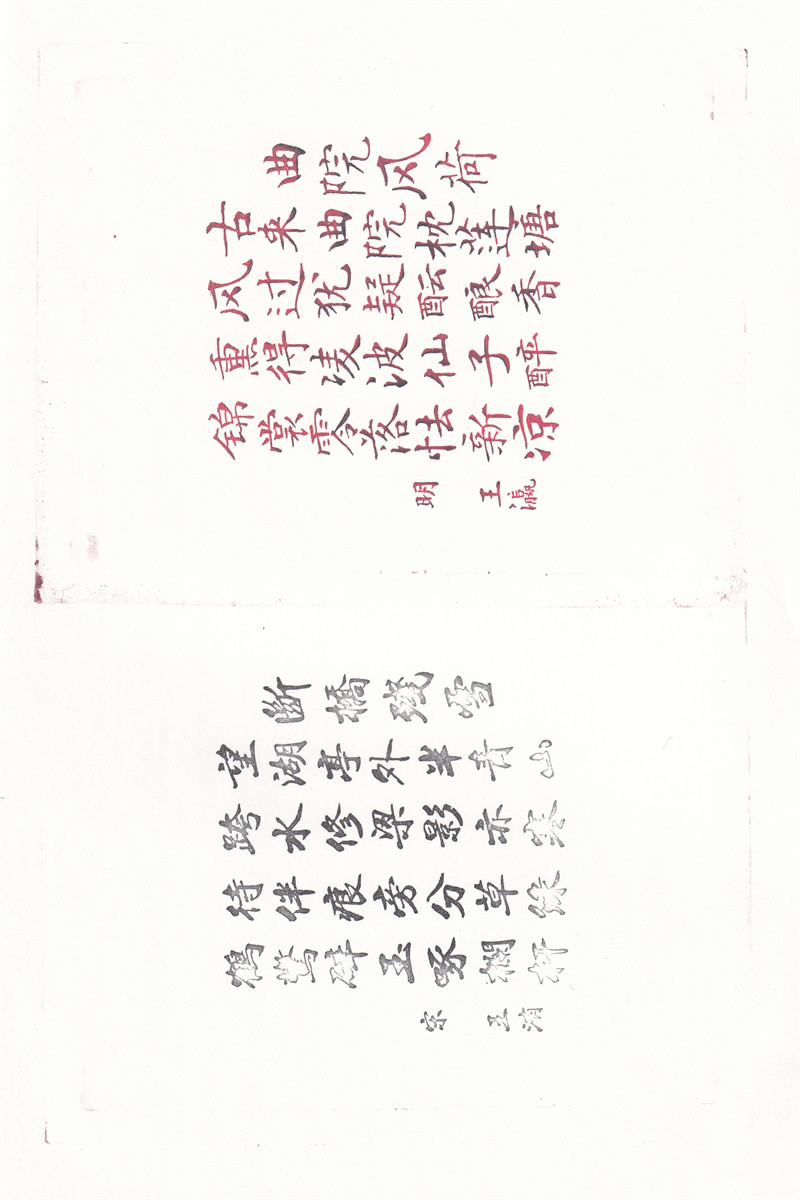 曲院风荷
古来曲院枕莲塘
风过犹疑酝酿香
熏得凌波仙子醉
锦裳零落怯新凉
明 王瀛
斷橋殘雪
望湖亭外半青山
跨水修梁影亦寒
待伴痕旁分草綠
鶴驚碎玉啄欄杆
宋 王洧